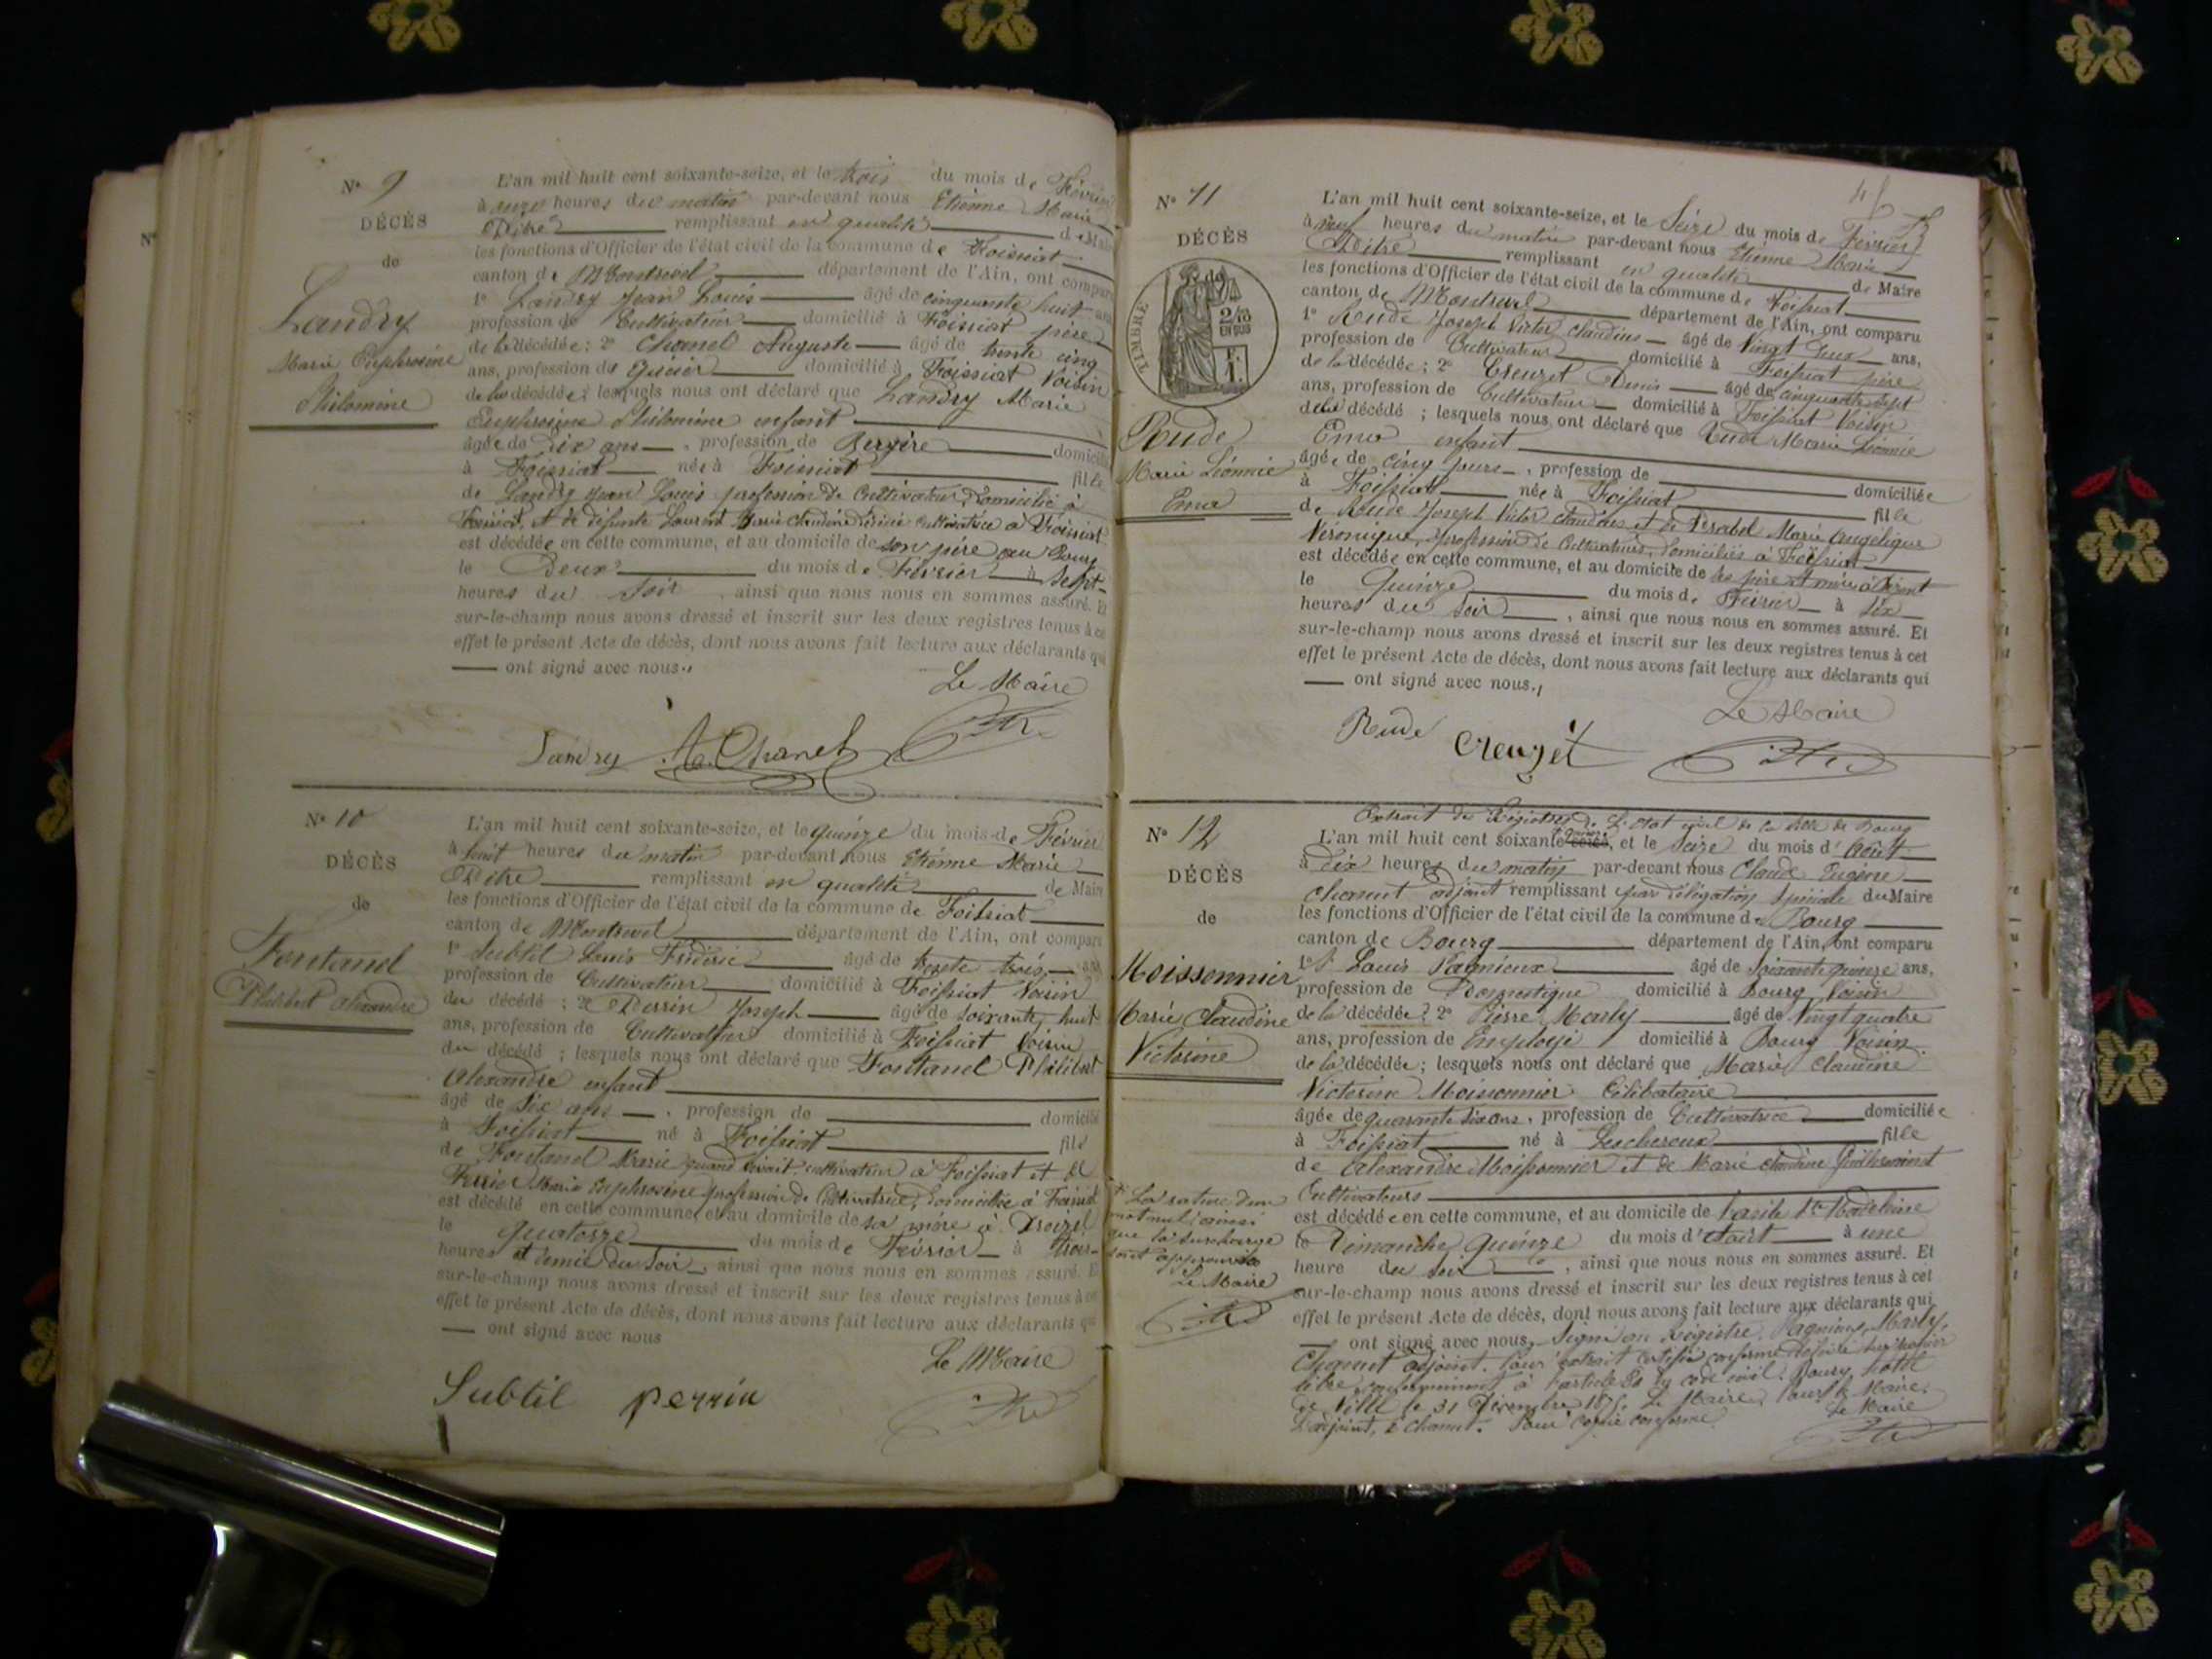 N° 9
DÉCÈS
de
Landry
Marie Euphrosine
Philomine
L'an mil huit cent soixante-seize, et le trois du mois de Février
à onze heures du matin par-devant nous Etienne Marie
Pitre remplissant en qualité de Maire
les fonctions d'Officier de l'état civil de la commune de Foissiat
canton de Montrevel département de l'Ain, ont comparu
1° Landry Jean Louis âgé de cinquante huit ans
profession de Cultivateur domicilié à Foissiat père
de la décédée ; 2° Chanel Auguste âgé de trente cinq
ans, profession de domicilié à Foissiat Voisin
de la décédée ; lesquels nous ont déclaré que Landry Marie
Euphrosine Philomine enfant
âgée de dix ans , profession de Bergère domicil
à Foissiat née à Foissiat fille
de Landry Jean Louis profession de Cultivateur domicilié à
Foissiat, et de défunte Laurent Marie Claudine cultivatrice à Foissiat
est décédée en cette commune, et au domicile de son père au Bourg
le Deux du mois de Février à Sept
heures du soir , ainsi que nous nous en sommes assuré. Et
sur-le-champ nous avons dressé et inscrit sur les deux registres tenus à cet
effet le présent Acte de décès, dont nous avons fait lecture aux déclarants qui
ont signé avec nous.
Le Maire
Landry A. Chanel
N° 10
DÉCÈS
de
Fontanel
Philibert Alexandre
L'an mil huit cent soixante-seize, et le quinze du mois de Février
à huit heures du matin par-devant nous Etienne Marie
Pitre remplissant en qualité de Maire
les fonctions d'Officier de l'état civil de la commune de Foissiat
canton de Montrevel département de l'Ain, ont comparu
1° Subtil Louis Frédéric âgé de trente trois ans
profession de Cultivateur domicilié à Foissiat Voisin
du décédé ; 2° Perrin Joseph âgé de soixante huit
ans, profession de Cultivateur domicilié à Foissiat Voisin
du décédé ; lesquels nous ont déclaré que Fontanel Philibert
Alexandre enfant
âgé de Six ans , profession de domicilié
à Foissiat né à Foissiat fils
de Fontanel Marie quand vivait cultivateur à Foissiat et de
Ferrier Marie Euphrosine profession de Cultivatrice, domiciliée à Foissiat
est décédé en cette commune, et au domicile de sa mère à
le quatorze du mois de Février à trois
heures et demie du soir , ainsi que nous nous en sommes assuré. Et
sur-le-champ nous avons dressé et inscrit sur les deux registres tenus à cet
effet le présent Acte de décès, dont nous avons fait lecture aux déclarants qui
ont signé avec nous
Le Maire
Subtil perrin
N° 11
DÉCÈS
de
TIMBRE
2/10 EN SUS
Rude
Marie Léonnie
Ema
L'an mil huit cent soixante-seize, et le Seize du mois de Février
à neuf heures du matin par-devant nous Etienne Marie
Pitre remplissant en qualité de Maire
les fonctions d'Officier de l'état civil de la commune de Foissiat
canton de Montrevel département de l'Ain, ont comparu
1° Rude Joseph Victor Claudius âgé de Vingt deux ans,
profession de Cultivateur domicilié à Foissiat père
de la décédée ; 2° Creuzet Denis âgé de cinquante sept
ans, profession de Cultivateur domicilié à Foissiat Voisin
de la décédé ; lesquels nous ont déclaré que Rude Marie Léonnie
Ema enfant
âgée de cinq jours , profession de domiciliée
à Foissiat née à Foissiat fille
de Rude Joseph Victor Claudius et de Marie Angélique
Véronique, profession de Cultivateurs, domiciliés à Foissiat
est décédée en cette commune, et au domicile de ses père et mère à
le Quinze du mois de Février à Six
heures du Soir , ainsi que nous nous en sommes assuré. Et
sur-le-champ nous avons dressé et inscrit sur les deux registres tenus à cet
effet le présent Acte de décès, dont nous avons fait lecture aux déclarants qui
ont signé avec nous.
Le Maire
Rude Creuzet
N° 12
DÉCÈS
de
Moissonnier
Marie Claudine
Victorine
La rature d'un
mot nul ainsi
que la surcharge
sont approuvés
Le Maire
Extrait du Registre de l'Etat civil de la Ville de Bourg
L'an mil huit cent soixante quinze, et le Seize du mois d'Août
à Dix heures du matin par-devant nous Claude Eugène
Chanut adjoint remplissant par délégation spéciale du Maire
les fonctions d'Officier de l'état civil de la commune de Bourg
canton de Bourg département de l'Ain, ont comparu
1° Louis Pagnieux âgé de Soixante quinze ans,
profession de Domestique domicilié à Bourg Voisin
de la décédée ; 2° Pierre Marly âgé de Vingt quatre
ans, profession de Employé domicilié à Bourg Voisin
de la décédée ; lesquels nous ont déclaré que Marie Claudine
Victorine Moissonnier Célibataire
âgée de quarante six ans , profession de Cultivatrice domiciliée
à Foissiat né à Lescheroux fille
de Alexandre Moissonnier et de Marie Claudine
Cultivateurs
est décédée en cette commune, et au domicile de l'asile Ste Madeleine
le Dimanche quinze du mois d'Août à une
heure du soir , ainsi que nous nous en sommes assuré. Et
sur-le-champ nous avons dressé et inscrit sur les deux registres tenus à cet
effet le présent Acte de décès, dont nous avons fait lecture aux déclarants qui
ont signé avec nous. Signé au Registre. Pagnieux, Marly,
Chanut adjoint. Pour extrait certifié conforme délivré sur papier
libre conformément à l'article 80 du code civil. Bourg hotel
de Ville le 31 Décembre 1875. Le Maire, Pour le Maire,
L'adjoint, E. Chanut. Pour copie conforme. Le Maire